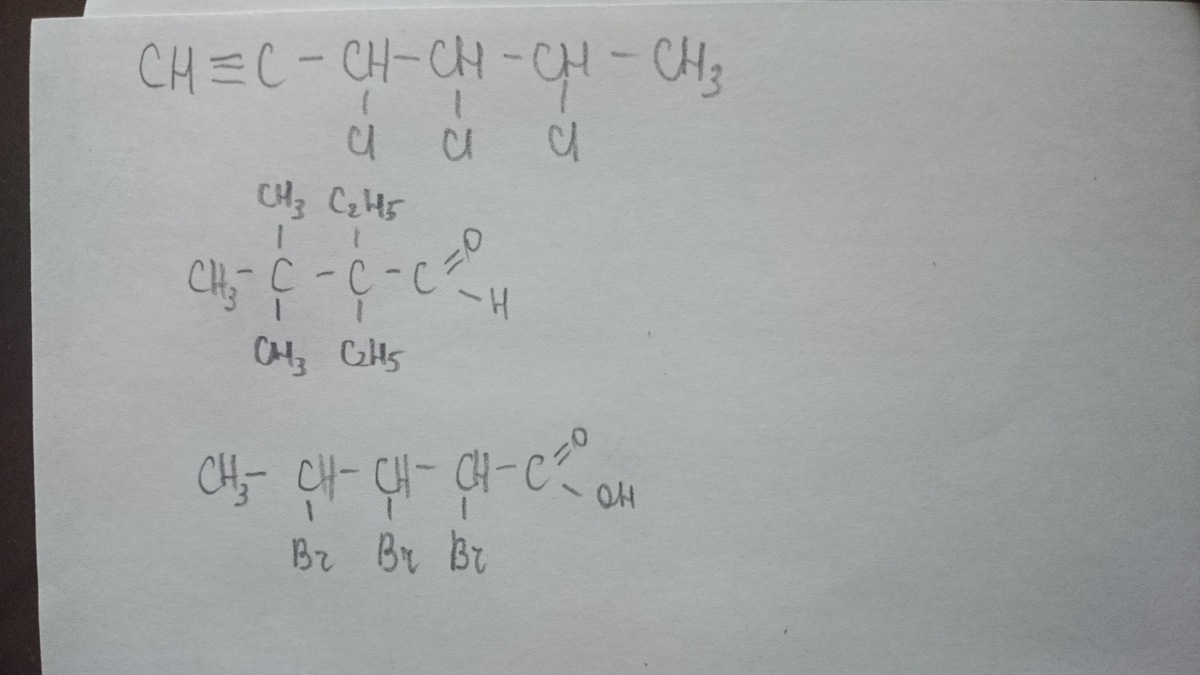 CH≡C-CH-CH-CH-CH3
Cl Cl Cl
CH3 C2H5
CH3-C-C-C=O
-H
CH3 C2H5
CH3-CH-CH-CH-C=O
-OH
Br Br Br